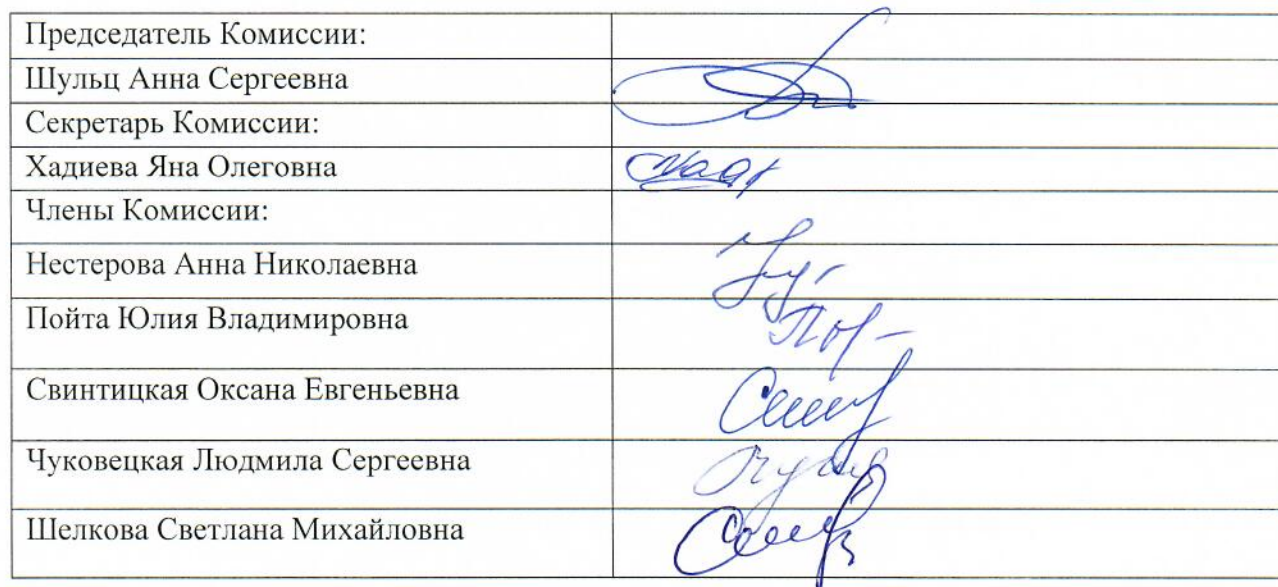 Председатель Комиссии:
Шульц Анна Сергеевна
Секретарь Комиссии:
Хадиева Яна Олеговна
Члены Комиссии:
Нестерова Анна Николаевна
Пойта Юлия Владимировна
Свинтицкая Оксана Евгеньевна
Чуковецкая Людмила Сергеевна
Шелкова Светлана Михайловна